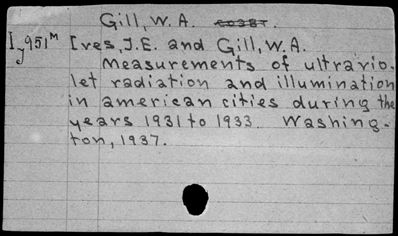 Gill, W. A.
Iy951M Ives, J.E. and Gill, W.A.
Measurements of ultravio-
let radiation and illumination
in american cities during the
years 1931 to 1933. Washing-
ton, 1937.